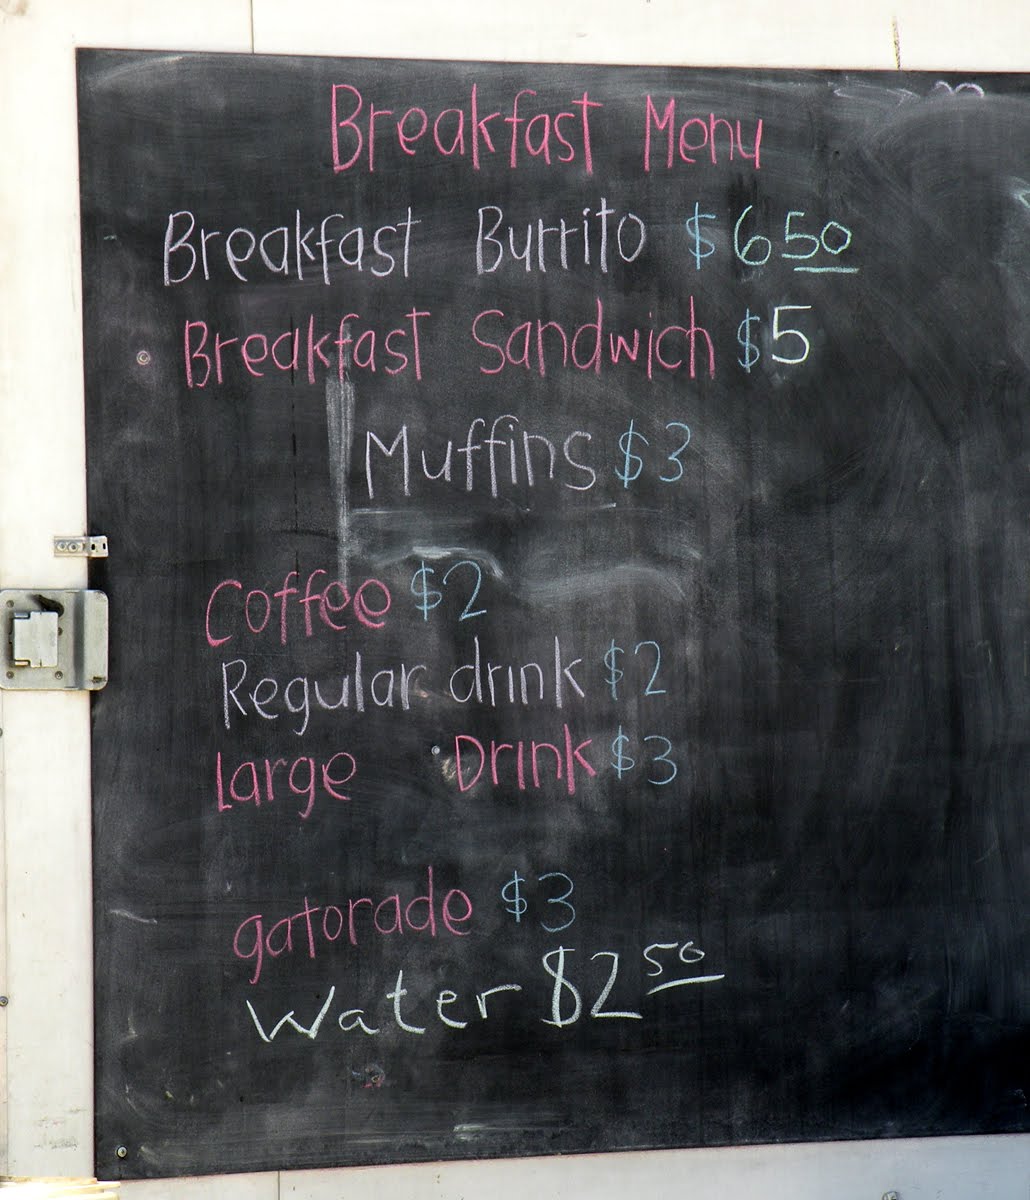 Breakfast Menu
Breakfast Burrito $6 50
Breakfast Sandwich $5
Muffins $3
Coffee $2
Regular drink $2
Large Drink $3
gatorade $3
Water $2 50